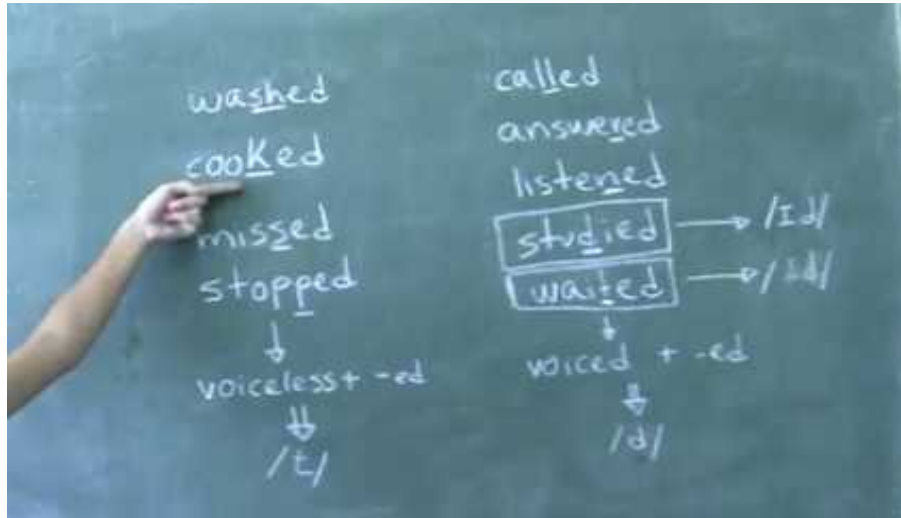 washed
cooked
missed
stopped
↓
voiceless + -ed
⇓
/t/
called
answered
listened
studied → /Id/
waited → /Id/
↓
voiced + -ed
⇓
/d/